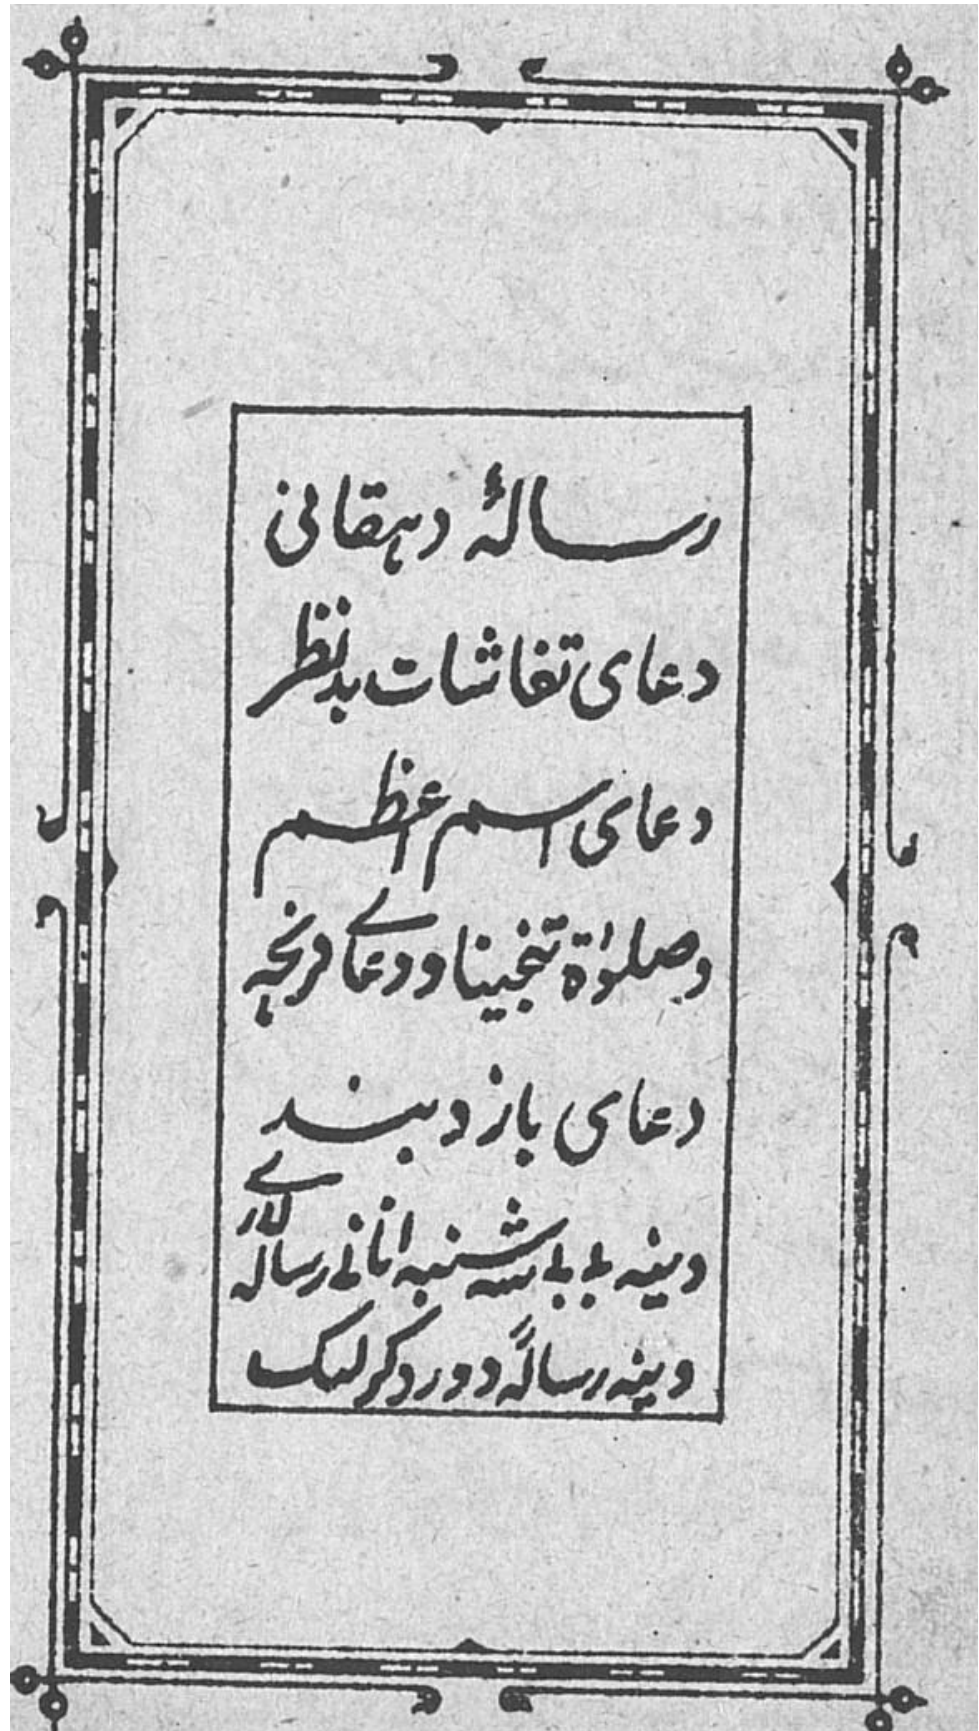 رسالهٔ دهقانی
دعای تفاشات بدنظر
دعای اسم اعظم
وصلوٰة تنجینا ودعاے قرنجه
دعای بازوبند
وینه بی بی سه شنبه انانی رساله لارے
وینه رسالهٔ دورد کرلیک